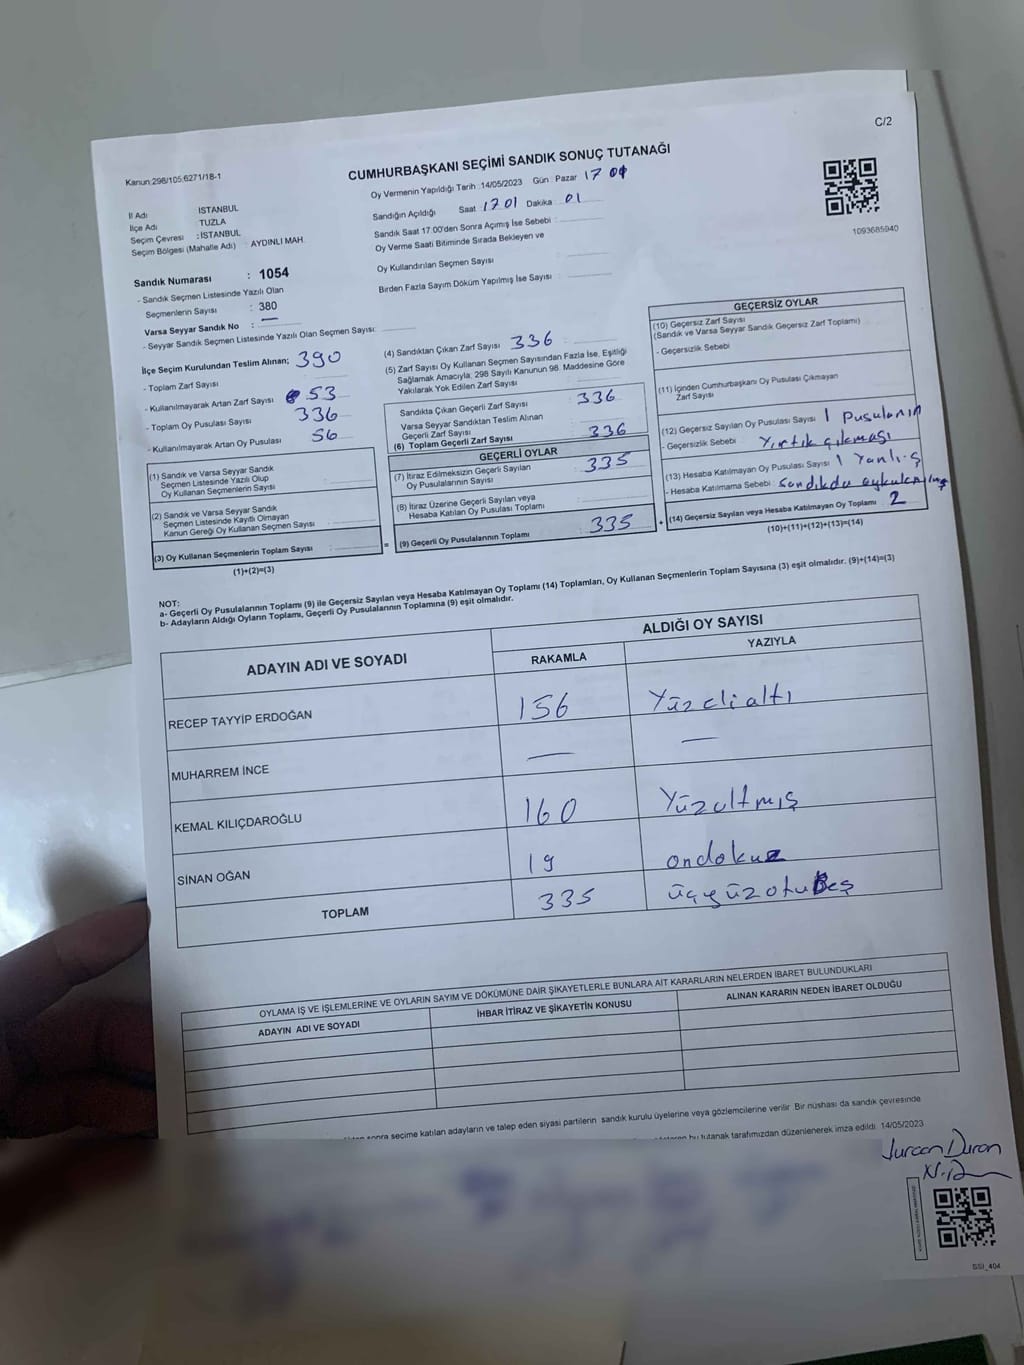 C/2
Kanun:298/105,6271/18-1
CUMHURBAŞKANI SEÇİMİ SANDIK SONUÇ TUTANAĞI
Oy Vermenin Yapıldığı Tarih :14/05/2023 Gün : Pazar 17 01
İl Adı : İSTANBUL
İlçe Adı : TUZLA
Seçim Çevresi : İSTANBUL
Seçim Bölgesi (Mahalle Adı) : AYDINLI MAH.
Sandığın Açıldığı Saat 1701 Dakika 01
Sandık Saat 17.00'den Sonra Açımış İse Sebebi :
Oy Verme Saati Bitiminde Sırada Bekleyen ve
Oy Kullandırılan Seçmen Sayısı :
Birden Fazla Sayım Döküm Yapılmış İse Sayısı :
1093685940
Sandık Numarası : 1054
- Sandık Seçmen Listesinde Yazılı Olan
Seçmenlerin Sayısı : 380
Varsa Seyyar Sandık No : —
- Seyyar Sandık Seçmen Listesinde Yazılı Olan Seçmen Sayısı:
İlçe Seçim Kurulundan Teslim Alınan; 390
- Toplam Zarf Sayısı
- Kullanılmayarak Artan Zarf Sayısı 53
- Toplam Oy Pusulası Sayısı 336
- Kullanılmayarak Artan Oy Pusulası 56
(1) Sandık ve Varsa Seyyar Sandık
Seçmen Listesinde Yazılı Olup
Oy Kullanan Seçmenlerin Sayısı :
(2) Sandık ve Varsa Seyyar Sandık
Seçmen Listesinde Kayıtlı Olmayan
Kanun Gereği Oy Kullanan Seçmen Sayısı :
(3) Oy Kullanan Seçmenlerin Toplam Sayısı :
(1)+(2)=(3)
(4) Sandıktan Çıkan Zarf Sayısı 336
(5) Zarf Sayısı Oy Kullanan Seçmen Sayısından Fazla İse, Eşitliği
Sağlamak Amacıyla, 298 Sayılı Kanunun 98. Maddesine Göre
Yakılarak Yok Edilen Zarf Sayısı :
Sandıkta Çıkan Geçerli Zarf Sayısı : 336
Varsa Seyyar Sandıktan Teslim Alınan
Geçerli Zarf Sayısı
(6) Toplam Geçerli Zarf Sayısı : 336
GEÇERLİ OYLAR
(7) İtiraz Edilmeksizin Geçerli Sayılan : 335
Oy Pusulalarının Sayısı
(8) İtiraz Üzerine Geçerli Sayılan veya
Hesaba Katılan Oy Pusulası Toplamı :
= (9) Geçerli Oy Pusulalarının Toplamı : 335
GEÇERSİZ OYLAR
(10) Geçersiz Zarf Sayısı
(Sandık ve Varsa Seyyar Sandık Geçersiz Zarf Toplamı)
- Geçersizlik Sebebi
(11) İçinden Cumhurbaşkanı Oy Pusulası Çıkmayan
Zarf Sayısı
(12) Geçersiz Sayılan Oy Pusulası Sayısı 1 Pusulanın
- Geçersizlik Sebebi : Yırtık çıkması
(13) Hesaba Katılmayan Oy Pusulası Sayısı 1 Yanlış
- Hesaba Katılmama Sebebi : Sandıkda
+ (14) Geçersiz Sayılan veya Hesaba Katılmayan Oy Toplamı : 2
(10)+(11)+(12)+(13)=(14)
NOT:
a- Geçerli Oy Pusulalarının Toplamı (9) ile Geçersiz Sayılan veya Hesaba Katılmayan Oy Toplamı (14) Toplamları, Oy Kullanan Seçmenlerin Toplam Sayısına (3) eşit olmalıdır. (9)+(14)=(3)
b- Adayların Aldığı Oyların Toplamı, Geçerli Oy Pusulalarının Toplamına (9) eşit olmalıdır.
ADAYIN ADI VE SOYADI
ALDIĞI OY SAYISI
RAKAMLA YAZIYLA
RECEP TAYYİP ERDOĞAN 156 Yüzelialtı
MUHARREM İNCE — —
KEMAL KILIÇDAROĞLU 160 Yüzaltmış
SİNAN OĞAN 19 ondokuz
TOPLAM 335 üçyüzotuBeş
OYLAMA İŞ VE İŞLEMLERİNE VE OYLARIN SAYIM VE DÖKÜMÜNE DAİR ŞİKAYETLERLE BUNLARA AİT KARARLARIN NELERDEN İBARET BULUNDUKLARI
ADAYIN ADI VE SOYADI İHBAR İTİRAZ VE ŞİKAYETİN KONUSU ALINAN KARARIN NEDEN İBARET OLDUĞU
sonra seçime katılan adayların ve talep eden siyasi partilerin sandık kurulu üyelerine veya gözlemcilerine verilir. Bir nüshası da sandık çevresinde
bu tutanak tarafımızdan düzenlenerek imza edildi. 14/05/2023
Duran
SSİ_404